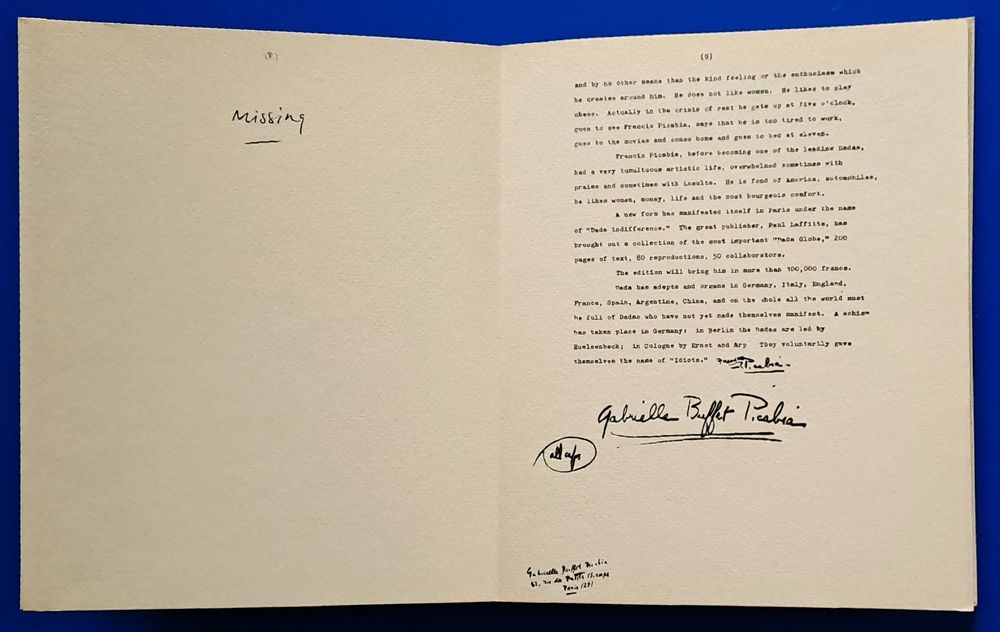 (8)
Missing
(9)
and by no other means than the kind feeling or the enthusiasm which
he creates around him. He does not like women. He likes to play
chess. Actually in the crisis of rest he gets up at five o'clock,
goes to see Francis Picabia, says that he is too tired to work,
goes to the movies and comes home and goes to bed at eleven.
Francis Picabia, before becoming one of the leading Dadas,
had a very tumultuous artistic life, overwhelmed sometimes with
praise and sometimes with insults. He is fond of America, automobiles,
he likes women, money, life and the most bourgeois comfort.
A new form has manifested itself in Paris under the name
of "Dada indifference." The great publisher, Paul Laffitte, has
brought out a collection of the most important "Dada Globe," 200
pages of text, 80 reproductions, 50 collaborators.
The edition will bring him in more than 100,000 francs.
Dada has adepts and organs in Germany, Italy, England,
France, Spain, Argentine, China, and on the whole all the world must
be full of Dadas who have not yet made themselves manifest. A schism
has taken place in Germany: in Berlin the Dadas are led by
Huelsenbeck; in Cologne by Ernst and Arp They voluntarily gave
themselves the name of "Idiots." Picabia.
Gabrielle Buffet Picabia
all caps
Gabrielle Buffet Picabia
rue des Petits Champs
Paris